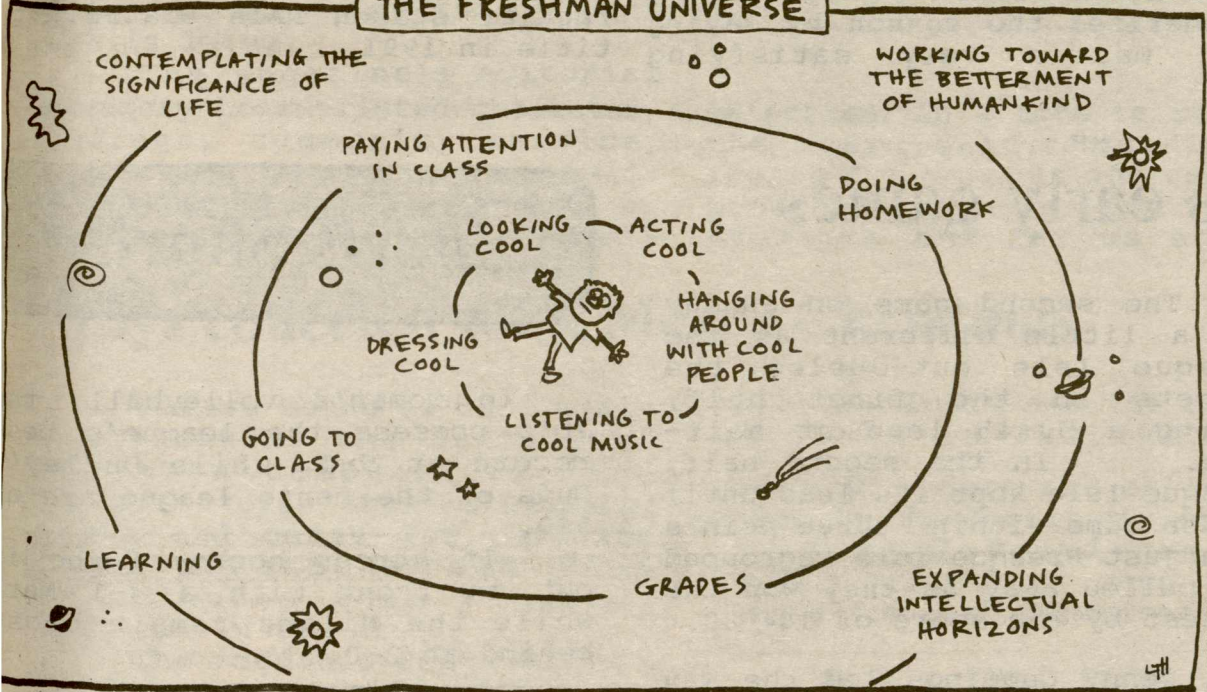 THE FRESHMAN UNIVERSE
CONTEMPLATING THE
SIGNIFICANCE OF
LIFE
WORKING TOWARD
THE BETTERMENT
OF HUMANKIND
PAYING ATTENTION
IN CLASS
DOING
HOMEWORK
LOOKING
COOL
ACTING
COOL
HANGING
AROUND
WITH COOL
PEOPLE
DRESSING
COOL
LISTENING TO
COOL MUSIC
GOING TO
CLASS
LEARNING
GRADES
EXPANDING
INTELLECTUAL
HORIZONS